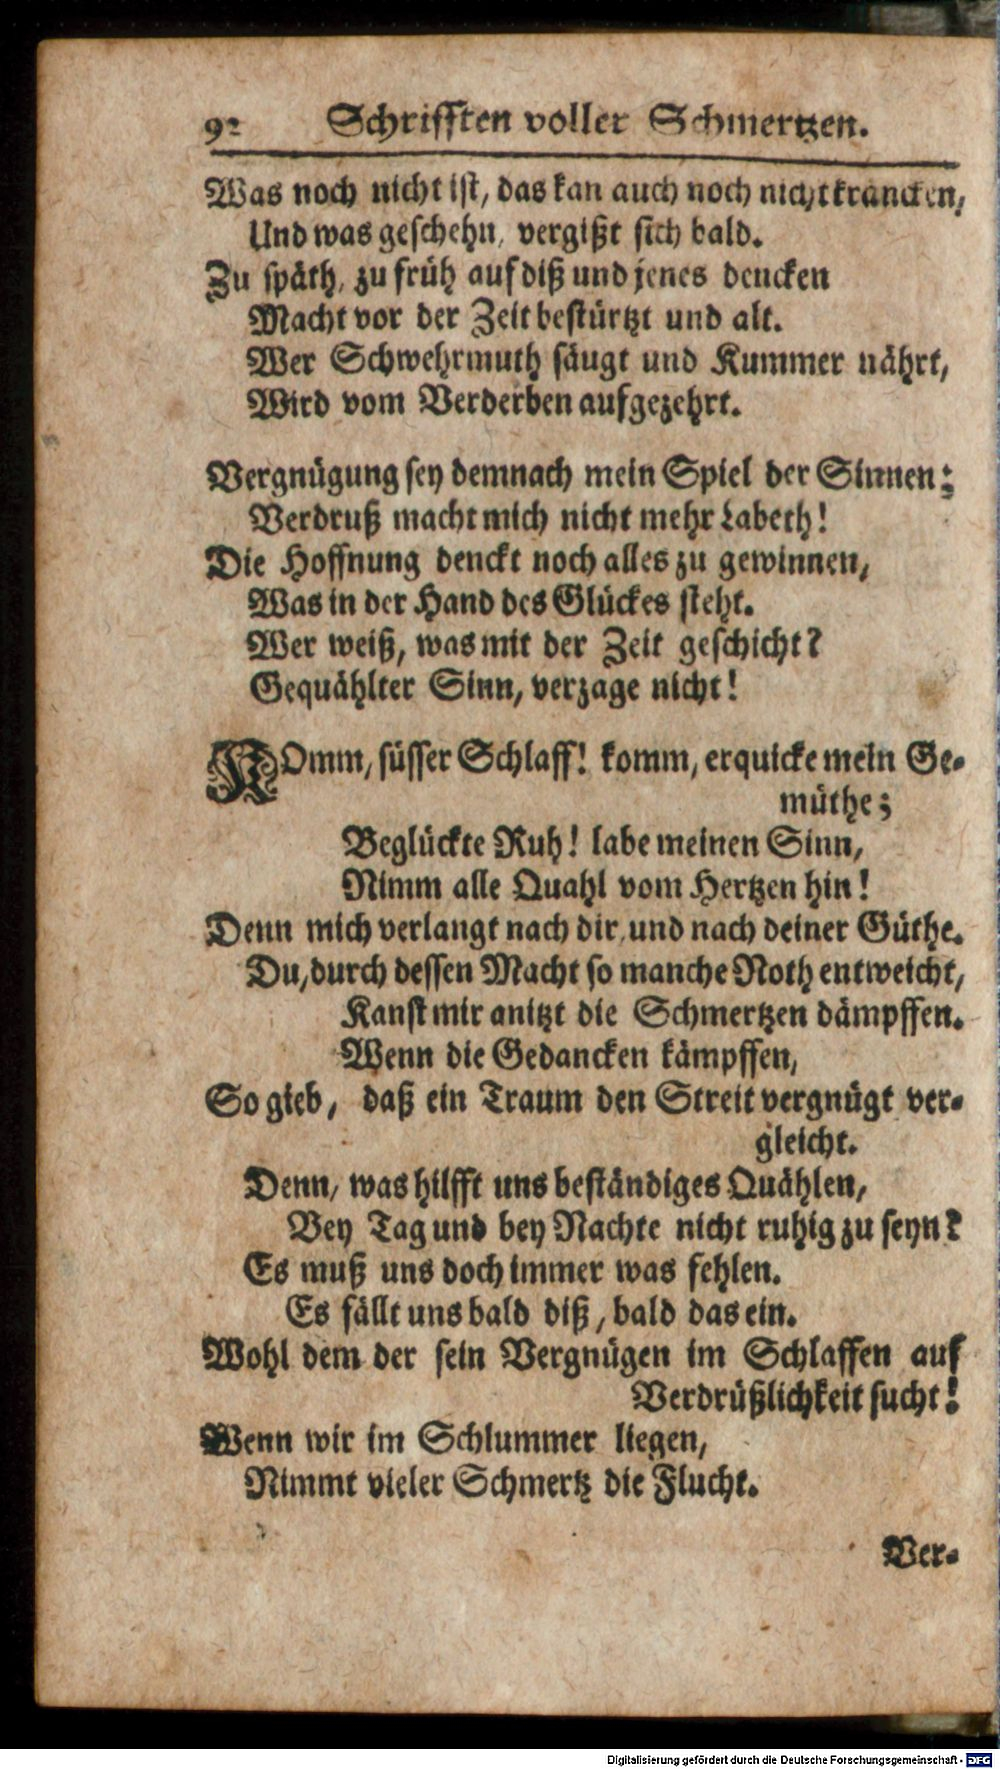 92 Schrifften voller Schmertzen.
Was noch nicht ist, das kan auch noch nicht kräncken,
Und was geschehn, vergißt sich bald.
Zu späth, zu früh auf diß und jenes dencken
Macht vor der Zeit bestürtzt und alt.
Wer Schwehrmuth säugt und Kummer nährt,
Wird vom Verderben aufgezehrt.
Vergnügung sey demnach mein Spiel der Sinnen;
Verdruß macht mich nicht mehr Labeth!
Die Hoffnung denckt noch alles zu gewinnen,
Was in der Hand des Glückes steht.
Wer weiß, was mit der Zeit geschicht?
Gequählter Sinn, verzage nicht!
KOmm, süsser Schlaff! komm, erquicke mein Ge-
müthe;
Beglückte Ruh! labe meinen Sinn,
Nimm alle Quahl vom Hertzen hin!
Denn mich verlangt nach dir, und nach deiner Güthe.
Du, durch dessen Macht so manche Noth entweicht,
Kanst mir anitzt die Schmertzen dämpffen.
Wenn die Gedancken kämpffen,
So gieb, daß ein Traum den Streit vergnügt ver-
gleicht.
Denn, was hilfft uns beständiges Quählen,
Bey Tag und bey Nachte nicht ruhig zu seyn?
Es muß uns doch immer was fehlen.
Es fällt uns bald diß, bald das ein.
Wohl dem der sein Vergnügen im Schlaffen auf
Verdrüßlichkeit sucht!
Wenn wir im Schlummer liegen,
Nimmt vieler Schmertz die Flucht.
Ver-
Digitalisierung gefördert durch die Deutsche Forschungsgemeinschaft - DFG